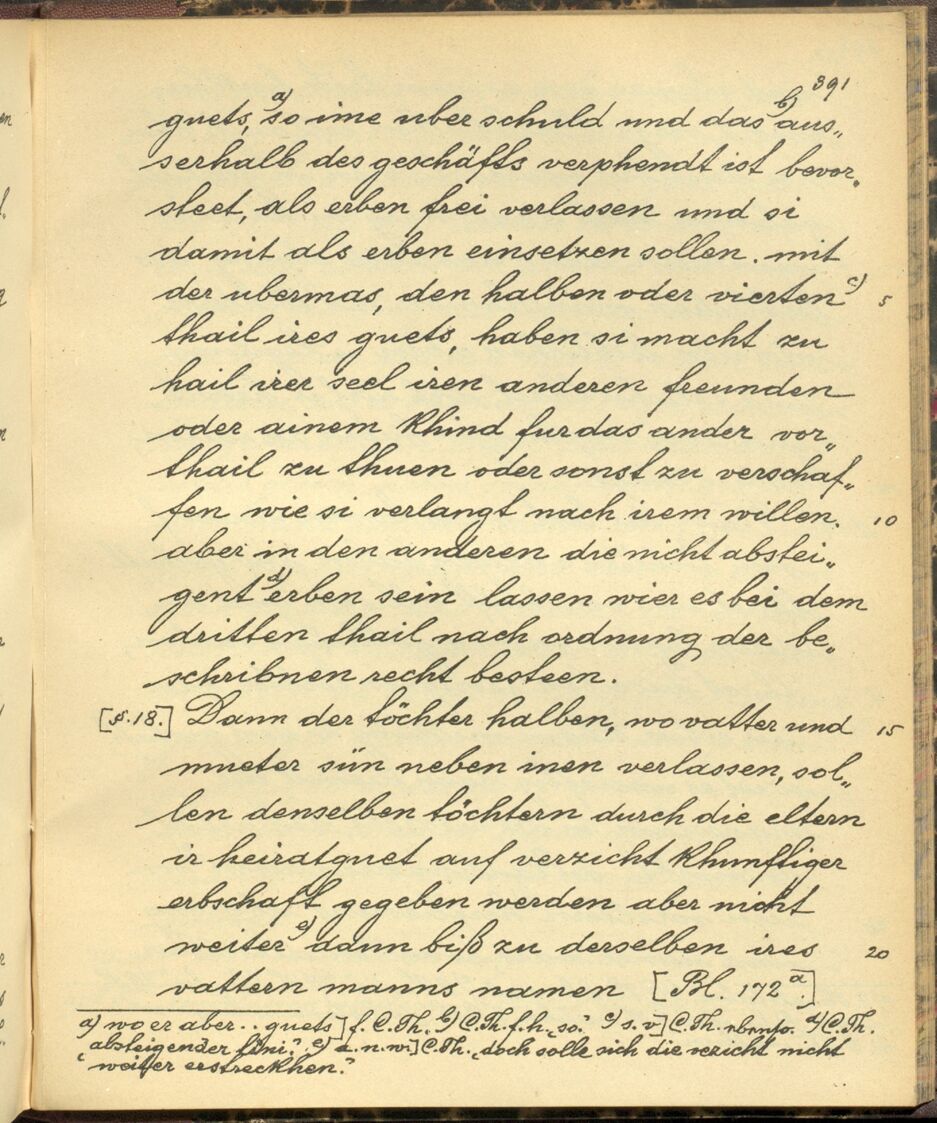 391
guets, a) so ime uber schuld und das b) aus„
serhalb des geschäfts verphendt ist bevor„
steet, als erben frei verlassen und si
damit als erben einsetzen sollen. mit
der ubermas, den halben oder vierten c) 5
thail ires guets, haben si macht zu
hail irer seel iren anderen freunden
oder ainem khind fur das ander vor„
thail zu thuen oder sonst zu verschaf„
fen wie si verlangt nach irem willen. 10
aber in den anderen die nicht abstei„
gent d) erben sein lassen wier es bei dem
dritten thail nach ordnung der be„
schribnen recht besteen.
[§.18.] Dann der töchter halben, wo vatter und 15
mueter sün neben inen verlassen, sol„
len denselben töchtern durch die eltern
ir heiratguet auf verzicht khunftiger
erbschaft gegeben werden aber nicht
weiter e) dann biß zu derselben ires 20
vattern manns namen [Bl. 172 a.]
a) wo er aber .. guets] f. C.Th. b) C.Th. f. h. „so.“ c) s. v.] C.Th. ebenso. d) C.Th.
„absteigender lini.“ e) a. n. w.] C.Th. „doch solle sich die verzicht nicht
weiter erstreckhen.“